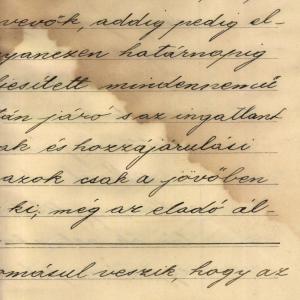 vevők, addig pedig el-
gyanezen határnapig
jesített mindennemű
tán járó s az ingatlant
ak és hozzájárulási
azok csak a jövőben
ki, még az eladó ál-
omásul veszik, hogy az